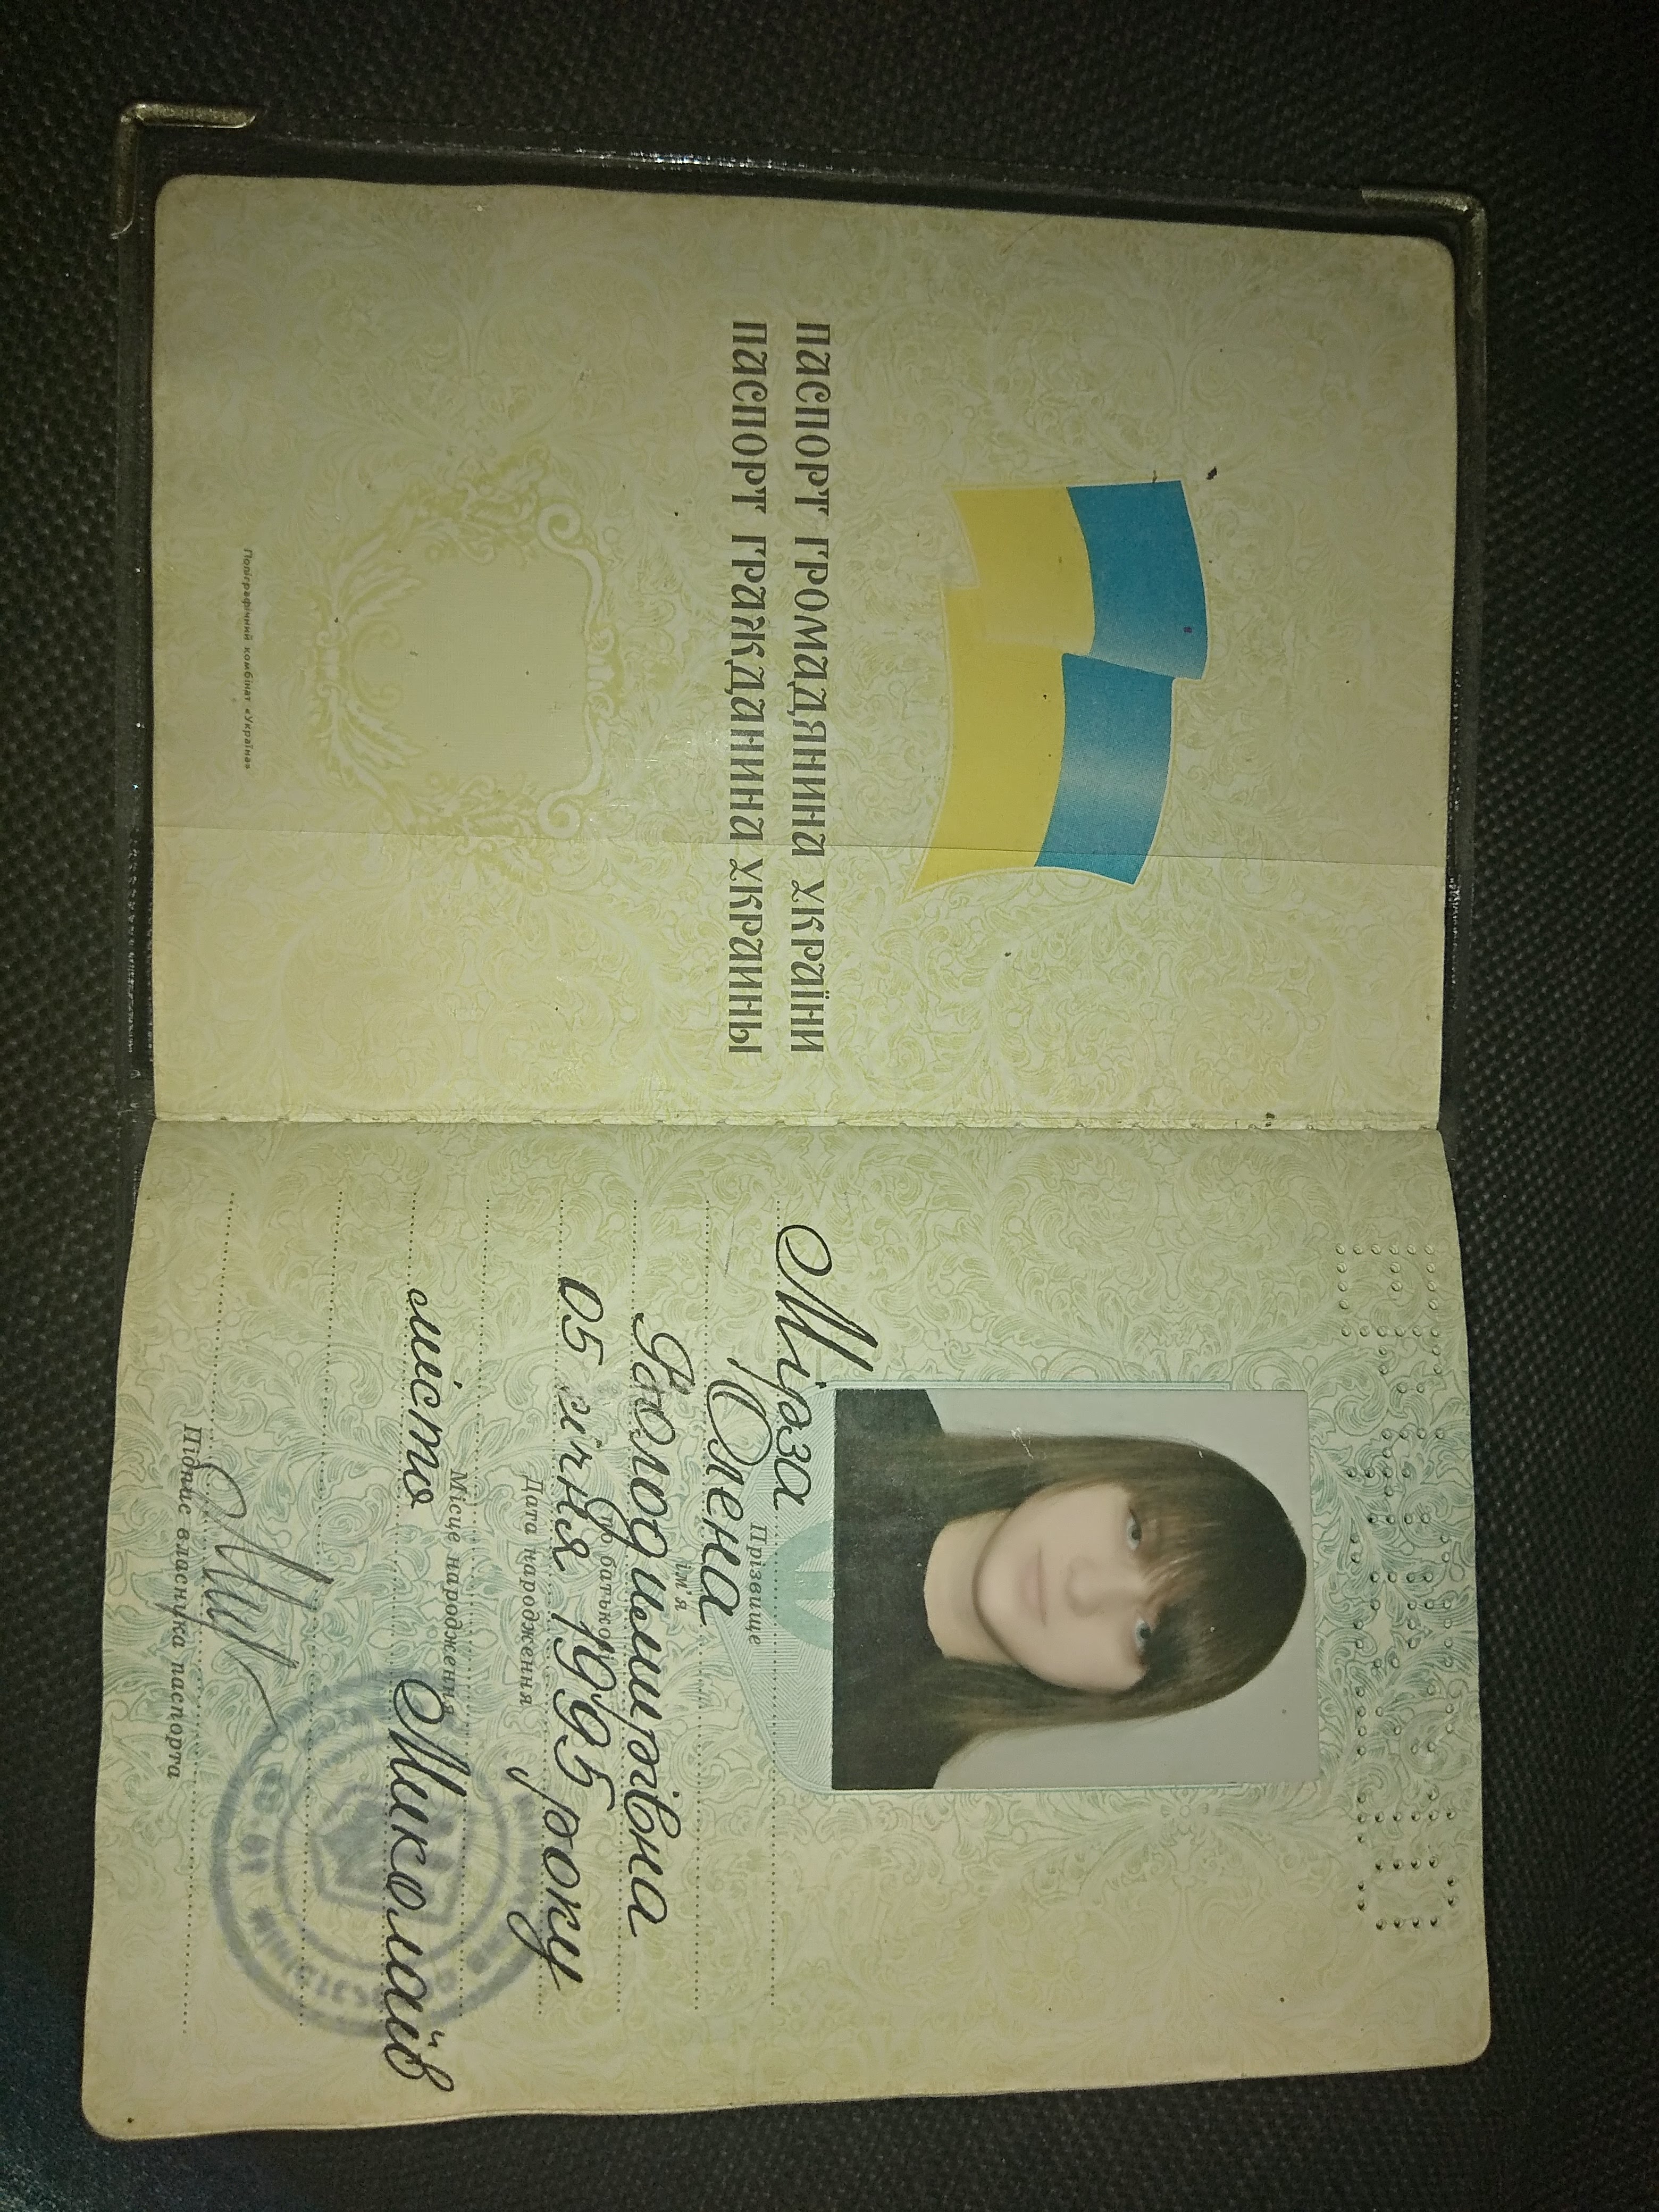 ПАСПОРТ ГРОМАДЯНИНА УКРАЇНИ
ПАСПОРТ ГРАЖДАНИНА УКРАИНЫ
Поліграфічний комбінат «Україна»
Мірза
Прізвище
Олена
ім'я
Володимирівна
по батькові
05 січня 1995 року
Дата народження
Місце народження
місто Миколаїв
Підпис власника паспорта